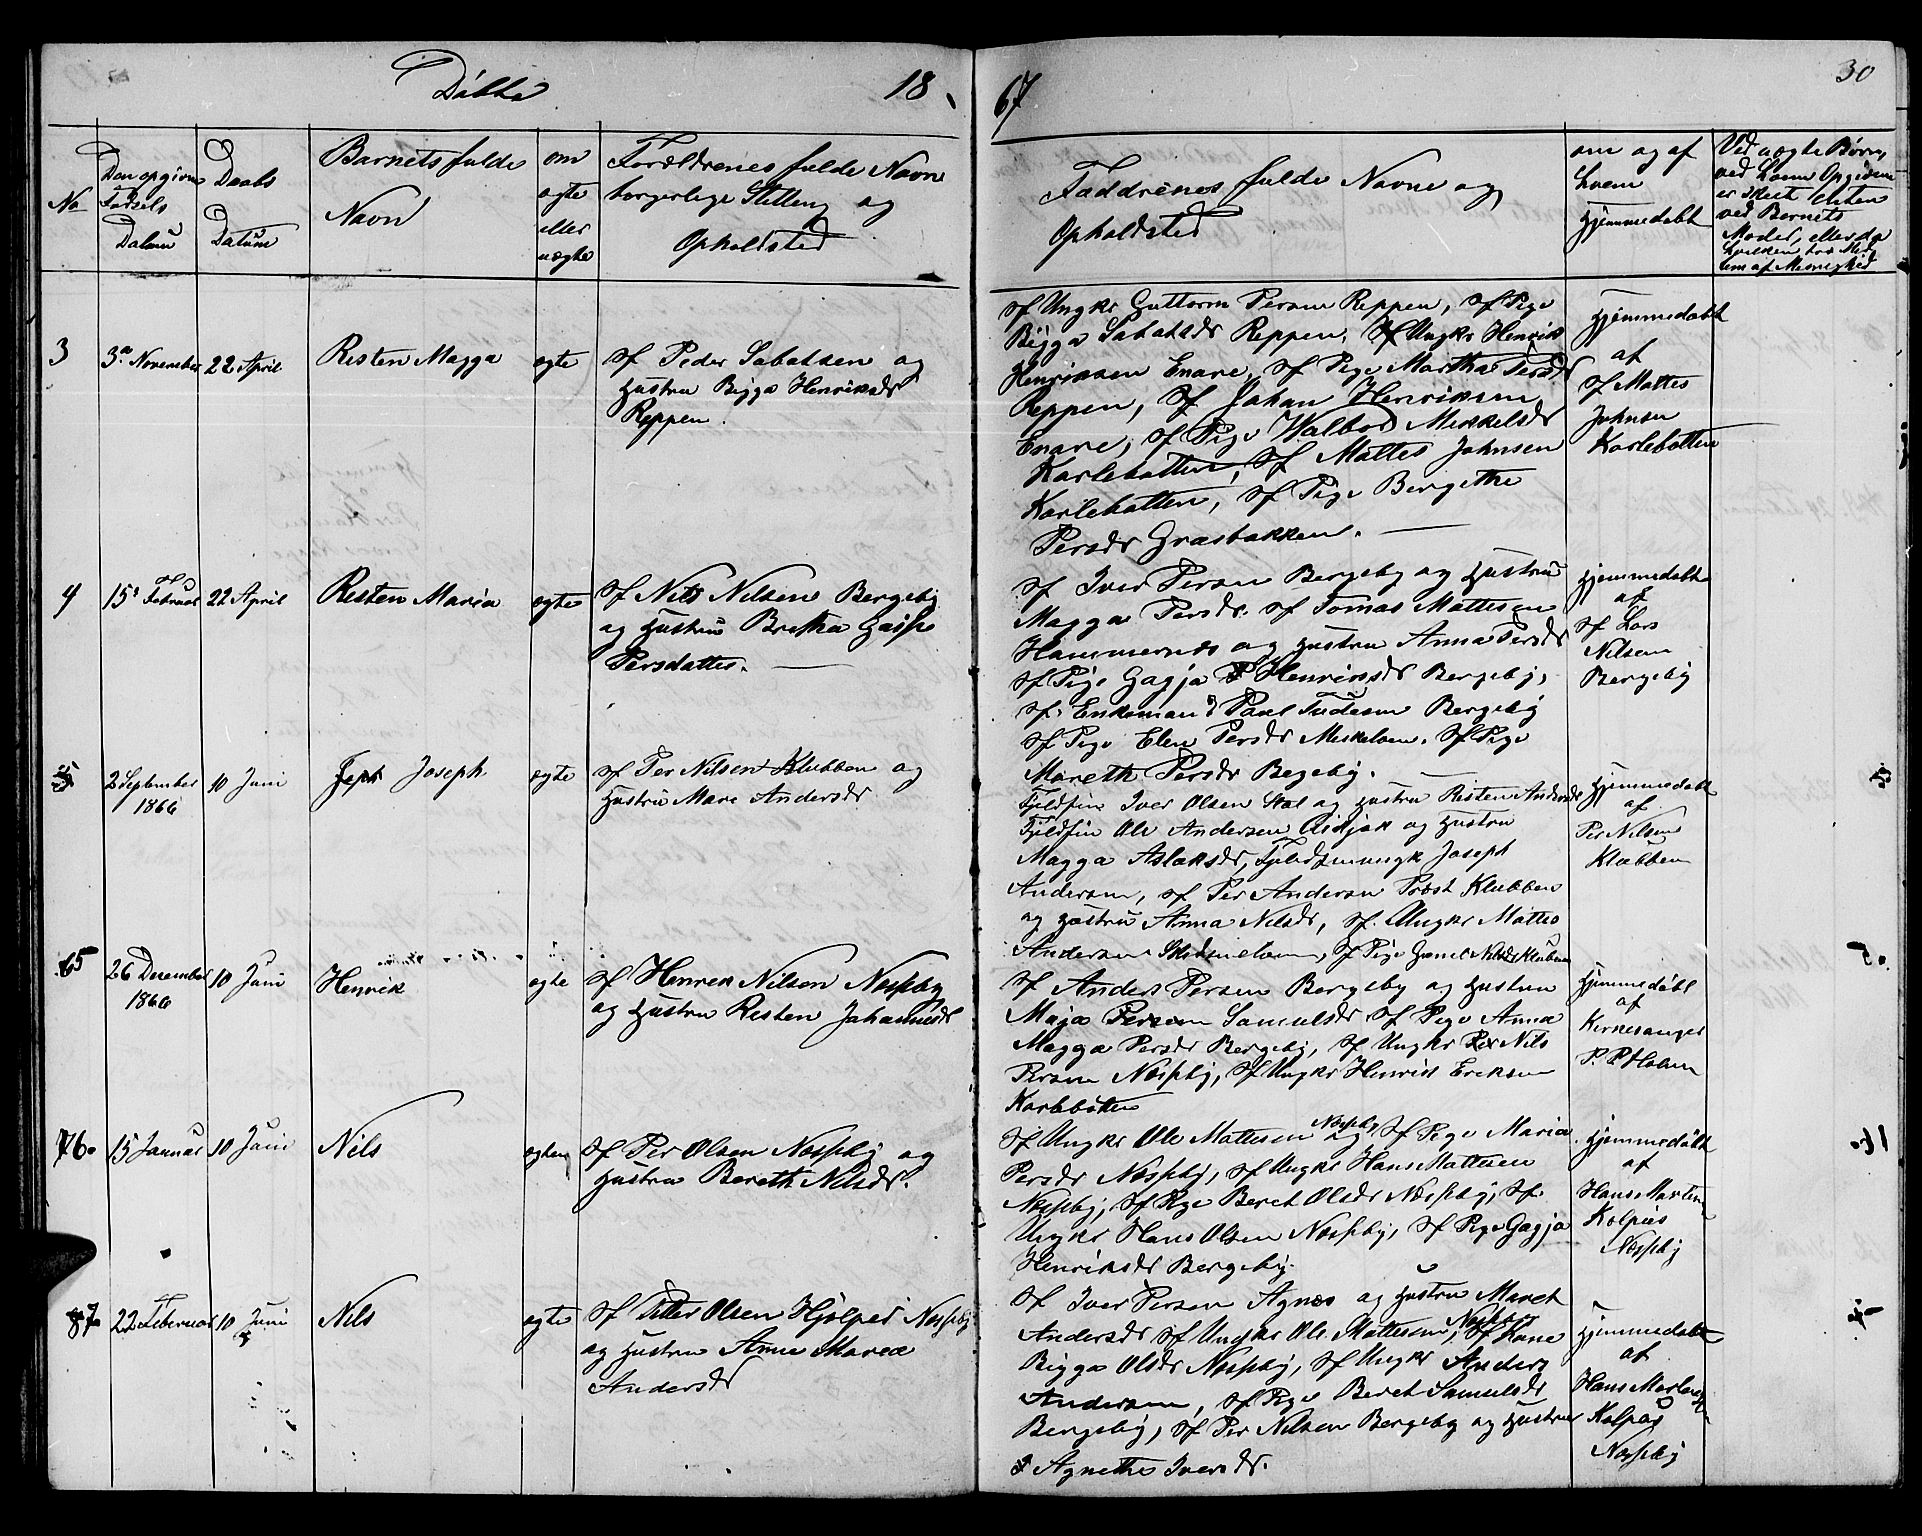 Døbte 18
67
30
No
Den opgivne Fødsels Datum
Daabs Datum
Barnets fulde Navn
om ægte eller uægte
Forældrenes fulde Navn
borgerlige Stilling og
Opholdsted
Faddrenes fulde Navne og
Opholdsted
om og af
hvem
Hjemmedøbt
Ved uægte Børn,
ved hvem Opgivene
er skeet enten
ved Barnets
Moder, eller
3
3 November
22 April
Risten Magga
ægte
Sf Peder Sabatsen og
Hustru Bigga Henriksdr
Reppen.
Sf Ungkr Guttorm Persen Reppen, Sf Pige
Bigga Sabatsdr Reppen, Sf Ungkr Henrik
Henriksen Enare, Sf Pige Martha Persdr
Reppen, Sf Johan Henriksen
Enare, Sf Pige Walbor Mikkelsdr
Karlebotten, Sf Mattes Johnsen
Karlebotten, Sf Pige Bergethe
Persdr Græsbakken.
Hjemmedøbt
af
Sf Mattes
Johnsen
Karlebotten
4
15 Februar
22 April
Risten Maria
ægte
Sf Nils Nilsen Bergeby
og Hustru
Persdatter.
Sf Iver Persen Bergeby og Hustru
Magga Persdr. Sf Tomas Mattesen
Hammernes og Hustru Anna Persdr
Sf Pige Gagja Henriksdr Bergeby,
Sf. Enkeman Paul Bergeby
Sf Pige Elen Persdr Meskelven, Sf Pige
Mareth Persdr Begeby.
Hjemmedøbt
af
Sf Lars
Nilsen
Bergeby
5
2 September
1866
10 Juni
Joseph
ægte
Sf Per Nilsen Klubben og
Hustru Mare Andersdr
Fjeldfin Iver Olsen og Hustru Risten Andersdr
Fjeldfin Ole Andersen og Hustru
Magga Aslaksdr, Joseph
Andersen, Sf Per Andersen Klubben
og Hustru Anna Nilsdr, Sf. Ungkr Mattes
Andersen Sf Pige Nilsdr Klubben
Hjemmedøbt
af
Per Nilsen
Klubben
5
5
26 December
1866
10 Juni
Henrik
ægte
Sf Henrik Nilsen Næsseby
og Hustru Risten Johannesdr
Sf Anders Persen Bergeby og Hustru
Maja Samuelsdr Sf Pige Anna
Magga Persdr Bergeby, Sf Ungkr Nils
Persen Næsseby, Sf Ungkr Henrik Eriksen
Karlebotten
Hjemmedøbt
af
Kirkesanger
5
6
15 Januar
10 Juni
Nils
ægte
Sf Per Olsen Næsseby og
Hustru Bereth Nilsdr.
Sf Ungkr Ole Mattesen Næsseby, Sf Pige Maria
Persdr Næsseby, Sf Ungkr Hans Mattesen
Næsseby, Sf Pige Beret Olsdr Næsseby, Sf.
Ungkr Hans Olsen Næsseby, Sf Pige Gagja
Henriksdr Bergeby.
Hjemmedøbt
af
Hans Morten
Kolpus
Næsseby
7
22 Februar
10 Juni
Nils
ægte
Sf Petter Olsen Hjelper Næsseby
og Hustru Anne Marea
Andersdr
Sf Iver Persen Agnes og Hustru Maret
Andersdr Sf Ungkr Ole Mattesen, Sf Kone
Bigga Olsdr Næsseby, Sf Ungkr Anders
Andersen, Sf Pige Beret Samuelsdr
Bergeby, Sf Per Nilsen Bergeby og Hustru
Agnethe Iversdr.
Hjemmedøbt
af
Hans Morten
Kolpus
Næsseby